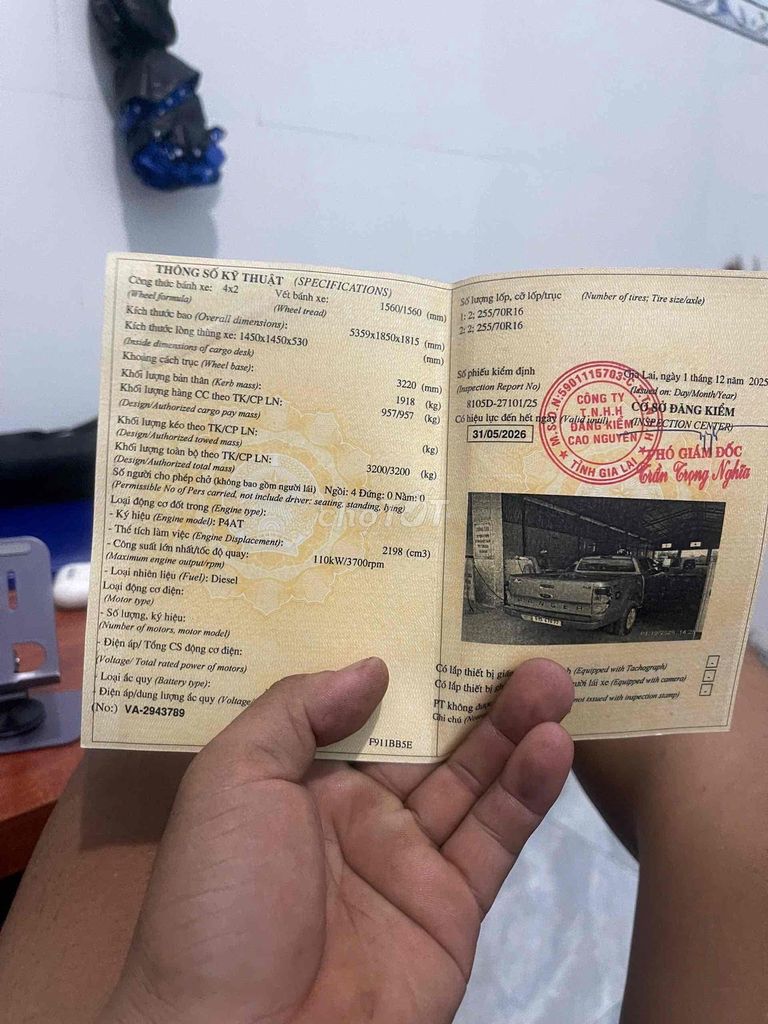 THÔNG SỐ KỸ THUẬT (SPECIFICATIONS)
Công thức bánh xe: 4x2
(Wheel formula)
Vết bánh xe: 1560/1560 (mm)
(Wheel tread)
Kích thước bao (Overall dimensions): 5359x1850x1815 (mm)
Kích thước lòng thùng xe: 1450x1450x530 (mm)
(Inside dimensions of cargo desk)
Khoảng cách trục (Wheel base): 3220 (mm)
Khối lượng bản thân (Kerb mass): 1918 (kg)
Khối lượng hàng CC theo TK/CP LN: 957/957 (kg)
(Design/Authorized cargo pay mass)
Khối lượng kéo theo TK/CP LN: (kg)
(Design/Authorized towed mass)
Khối lượng toàn bộ theo TK/CP LN: 3200/3200 (kg)
(Design/Authorized total mass)
Số người cho phép chở (không bao gồm người lái) Ngồi: 4 Đứng: 0 Nằm: 0
(Permissible No of Pers carried, not include driver: seating, standing, lying)
Loại động cơ đốt trong (Engine type):
- Ký hiệu (Engine model): P4AT
- Thể tích làm việc (Engine Displacement): 2198 (cm3)
- Công suất lớn nhất/tốc độ quay: 110kW/3700rpm
(Maximum engine output/rpm)
- Loại nhiên liệu (Fuel): Diesel
Loại động cơ điện:
(Motor type)
- Số lượng, ký hiệu:
(Number of motors, motor model)
- Điện áp/ Tổng CS động cơ điện:
(Voltage/ Total rated power of motors)
- Loại ắc quy (Battery type):
- Điện áp/dung lượng ắc quy (Voltage
(No:) VA-2943789
F911BB5E
Số lượng lốp, cỡ lốp/trục (Number of tires; Tire size/axle)
1: 2; 255/70R16
2: 2; 255/70R16
Số phiếu kiểm định
(Inspection Report No)
8105D-27101/25
Có hiệu lực đến hết ngày (Valid until)
31/05/2026
Gia Lai, ngày 1 tháng 12 năm 2025
(Issued on: Day/Month/Year)
CƠ SỞ ĐĂNG KIỂM
(INSPECTION CENTER)
M.S.D.N:5901115703-C
CÔNG TY
T.N.H.H
ĐĂNG KIỂM
CAO NGUYÊN
TỈNH GIA LAI
PHÓ GIÁM ĐỐC
Trần Trọng Nghĩa
RANGER
Có lắp thiết bị (Equipped with Tachograph)
Có lắp thiết bị người lái xe (Equipped with camera)
PT không not issued with inspection stamp)
Ghi chú
chợTỐT